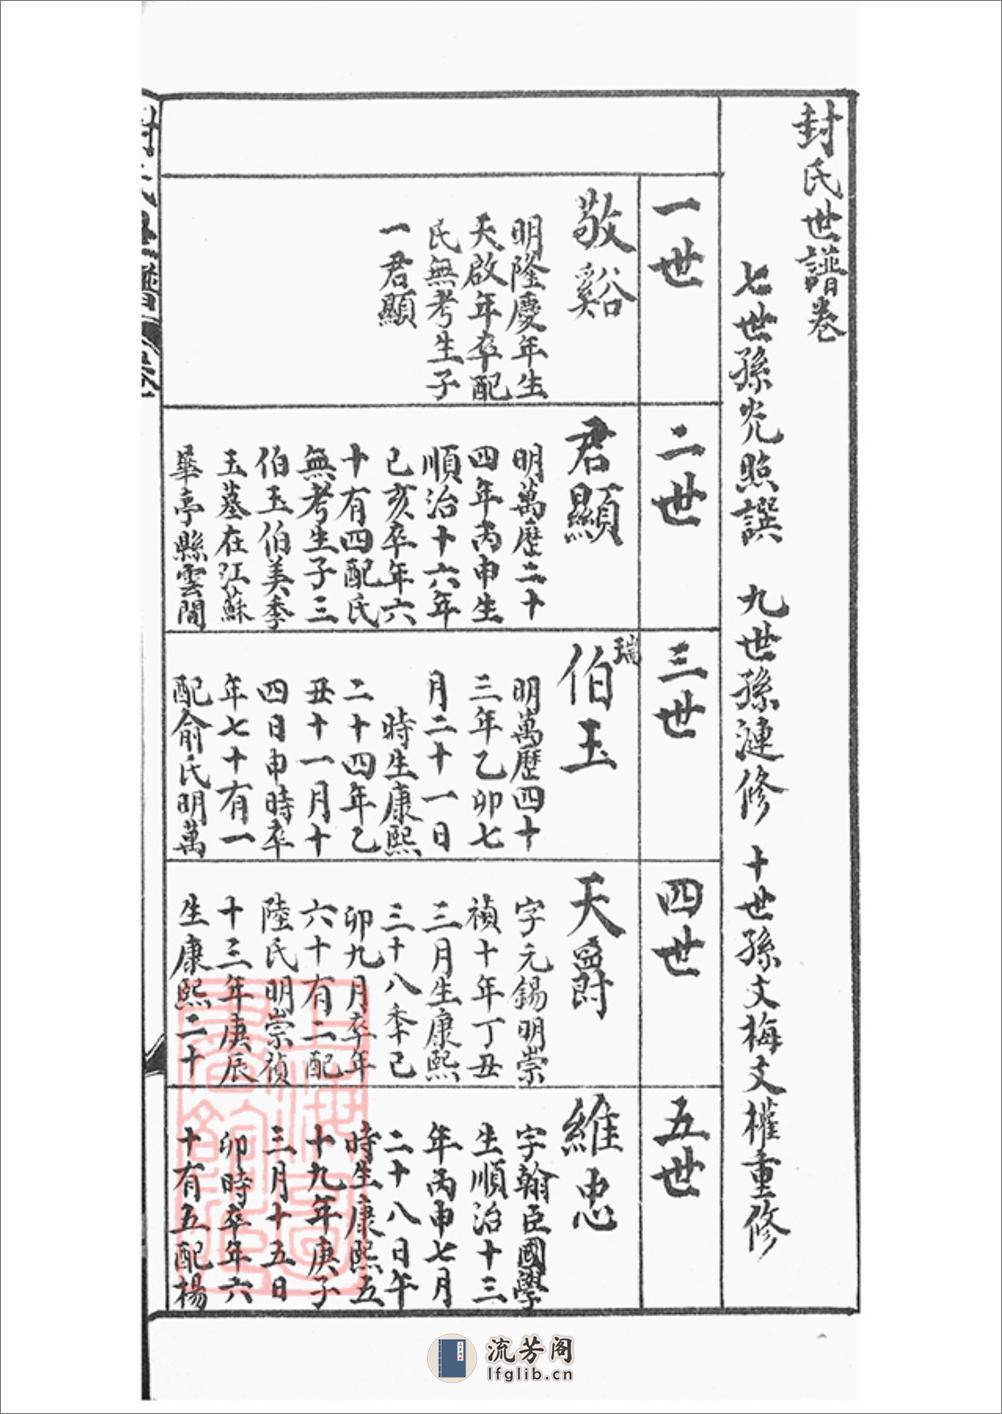 封氏世譜卷
七世孫光照譔　九世孫漣修　十世孫文梅文權重修
一世
敬谿
明隆慶年生
天啟年卒配
氏無考生子
一君顯
二世
君顯
明萬歷二十
四年丙申生
順治十六年
己亥卒年六
十有四配氏
無考生子三
伯玉伯美季
玉墓在江蘇
華亭縣雲間
三世
瑞
伯玉
明萬歷四十
三年乙卯七
月二十一日
時生康熙
二十四年乙
丑十一月十
四日申時卒
年七十有一
配俞氏明萬
四世
天爵
字元錫明崇
禎十年丁丑
三月生康熙
三十八季己
卯九月卒年
六十有二配
陸氏明崇禎
十三年庚辰
生康熙二十
五世
維忠
字翰臣國學
生順治十三
年丙申七月
二十八日午
時生康熙五
十九年庚子
三月十五日
卯時卒年六
十有五配楊
流芳阁
lfglib.cn